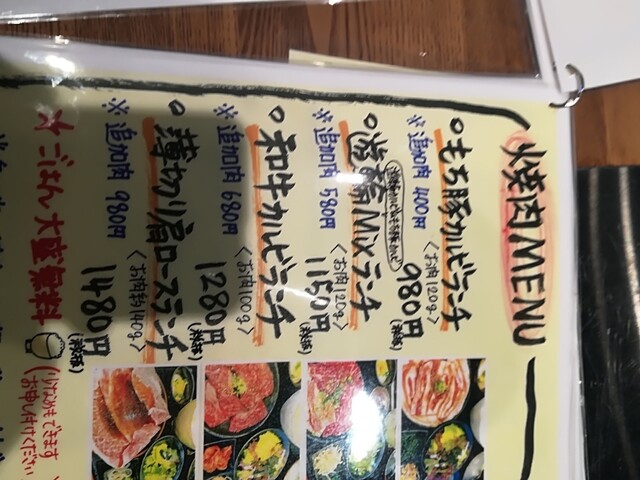 焼肉MENU
○もち豚カルビランチ
〈お肉120g〉
※追加肉 400円
980円(税抜)
Mixランチ
〈お肉120g〉
※追加肉 580円
1150円(税抜)
○和牛カルビランチ
〈お肉100g〉
※追加肉 680円
1280円(税抜)
○薄切り肩ロースランチ
〈お肉約140g〉
※追加肉 980円
1480円(税抜)
☆ごはん大盛無料
お申し付けください